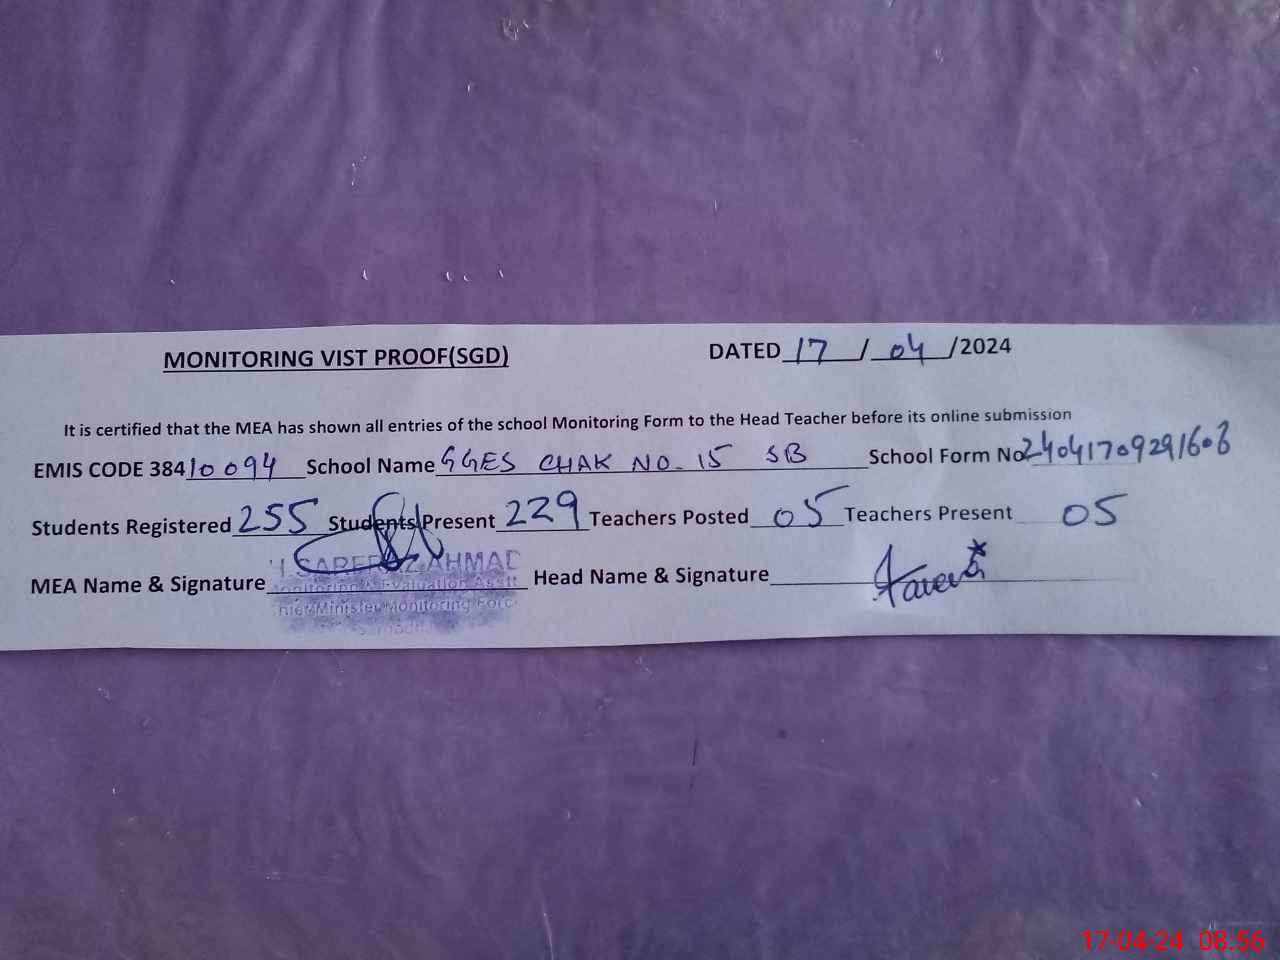 MONITORING VIST PROOF(SGD) DATED 17 / 04 /2024
It is certified that the MEA has shown all entries of the school Monitoring Form to the Head Teacher before its online submission
EMIS CODE 38410094 School Name GGES CHAK NO. 15 SB School Form No
Students Registered 255 Students Present 229 Teachers Posted 05 Teachers Present 05
AHMAD
MEA Name & Signature Monitoring & Evaluation Asstt Head Name & Signature
Chief Minister Monitoring Force
17-04-24 08:56